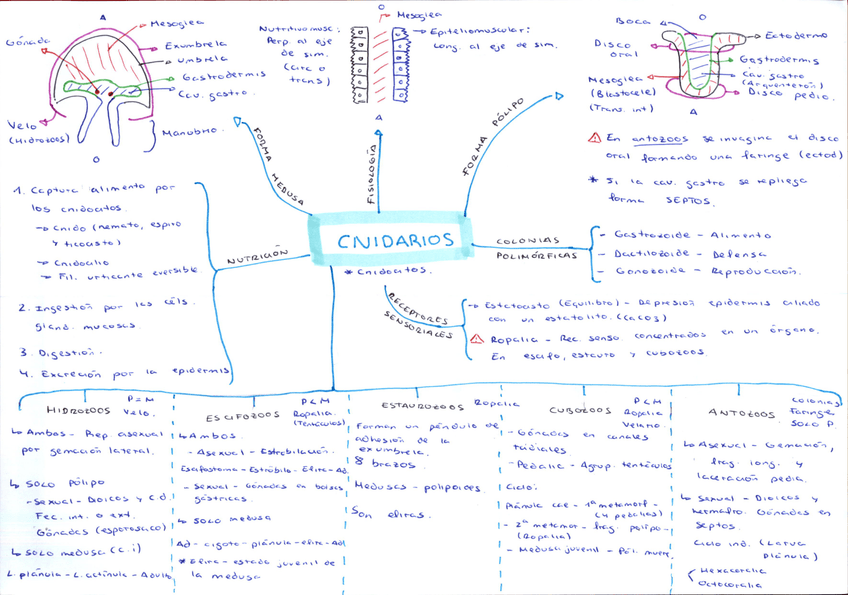 A
Mesoglea
Gónada
Exumbrela
Umbrela
Gastrodermis
Cav. gastro.
Velo
(Hidrozoos)
Manubrio.
O
O
Mesoglea
Nutritivomusc:
Perp al eje
de sim.
(Circ o
trans)
Epiteliomuscular:
Long. al eje de sim.
A
Boca
O
Ectodermo
Disco
oral
Gastrodermis
Mesoglea
(Blastocele)
(Trans. int)
Cav. gastro
(Arquenterón)
Disco pedio.
A
FORMA MEDUSA
FISIOLOGÍA
FORMA PÓLIPO
En antozoos se invagina el disco
oral formando una faringe (ectod)
* Si la cav. gastro se repliega
forma SEPTOS.
CNIDARIOS
* Cnidocitos.
NUTRICIÓN
1. Captura alimento por
los cnidocitos.
→ Cnido (nemato, espiro
y ticocisto)
→ Cnidocilio
→ Fil. urticante eversible.
2. Ingestión por las céls.
gland. mucosas.
3. Digestión.
4. Excreción por la epidermis
COLONIAS
POLIMÓRFICAS
- Gastrozoide - Alimento
- Dactilozoide - Defensa
- Gonozoide - Reproducción.
RECEPTORES
SENSORIALES
→ Estatocisto (Equilibrio) - Depresión epidermis ciliado
con un estatolito. (CaCO3)
Ropalia - Rec. senso concentrados en un órgano.
En escifo, estauro y cubozoos
HIDROZOOS
P = M
Velo.
↳ Ambos - Rep asexual
por gemación lateral.
↳ SOLO PÓLIPO
- Sexual - Dioicos y c.d.
Fec. int. o ext.
Gónadas (esporosaco)
↳ SOLO MEDUSA (c.i)
L. plánula - L. actínula - Adulto
ESCIFOZOOS
P < M
Ropalia.
(Tentáculos)
↳ Ambos.
- Asexual - Estrobilación.
Escifistoma - Estróbilo - Efira - Ad.
- Sexual - Gónadas en bolsas
gástricas.
↳ SOLO MEDUSA
Ad - cigoto - plánula - efira - Ad
* Efira - estado juvenil de
la medusa
ESTAUROZOOS
Ropalia
Forman un péndulo de
adhesión de la
exumbrela.
8 brazos.
Medusas - polipoides.
Son efiras.
CUBOZOOS
P < M
Ropalia
Velario
- Gónadas en canales
radiales.
- Pedalia - Agrup. tentáculos
Ciclo:
Plánula cae - 1ª metamorf -
(4 pedalias)
- 2ª metamor - frag. pólipo -
(Ropalia)
- Medusa juvenil - Pól. muere.
ANTOZOOS
Colonias
Faringe
SOLO P.
↳ Asexual - Gemación,
frag. long. y
laceración pedia.
↳ Sexual - Dioicos y
hermafro. Gónadas en
septos.
Ciclo ind. (Larva
plánula)
Hexacoralia
Octocoralia